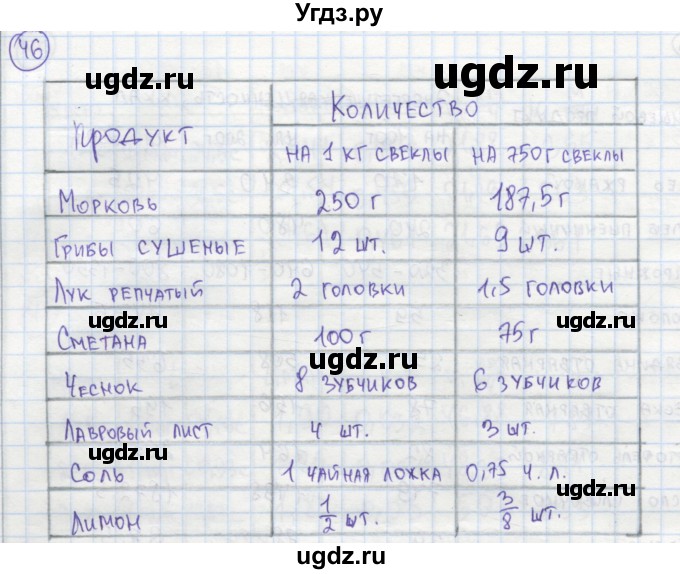 Угдз.ру
46
ugdz.ru ugdz.ru
Продукт Количество
на 1 кг свеклы на 750г свеклы
Морковь 250 г 187,5 г
ugdz.ru
Грибы сушеные 12 шт. 9 шт.
Лук репчатый 2 головки 1,5 головки
ugdz.ru ugdz.ru
Сметана 100 г 75 г
ugdz.ru
Чеснок 8 зубчиков 6 зубчиков
ugdz.ru
Лавровый лист 4 шт. 3 шт.
Соль 1 чайная ложка 0,75 ч. л.
ugdz.ru
Лимон 1/2 шт. 3/8 шт.
ugdz.ru